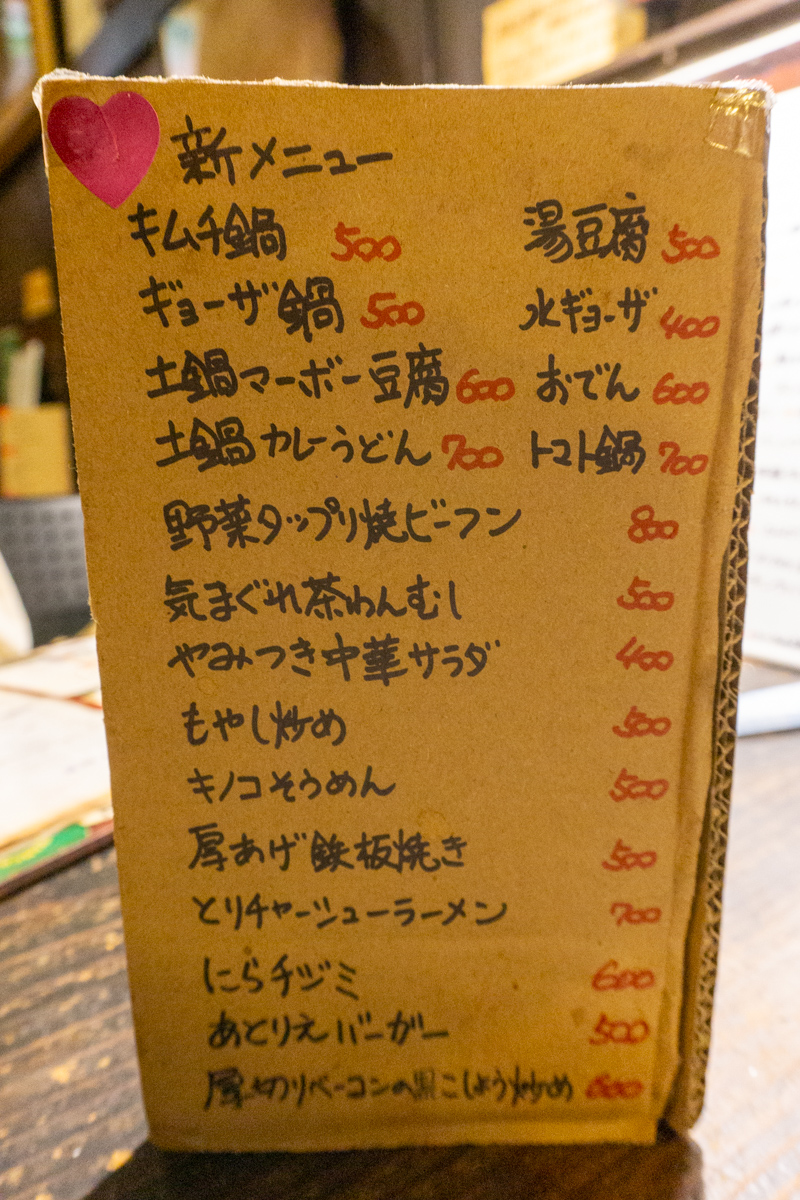 新メニュー
キムチ鍋 500 湯豆腐 500
ギョーザ鍋 500 水ギョーザ 400
土鍋マーボー豆腐 600 おでん 600
土鍋カレーうどん 700 トマト鍋 700
野菜タップリ焼ビーフン 800
気まぐれ茶わんむし 500
やみつき中華サラダ 400
もやし炒め 500
キノコそうめん 500
厚あげ鉄板焼き 500
とりチャーシューラーメン 700
にらチヂミ 600
あとりえバーガー 500
厚切りベーコンの黒こしょう炒め 600